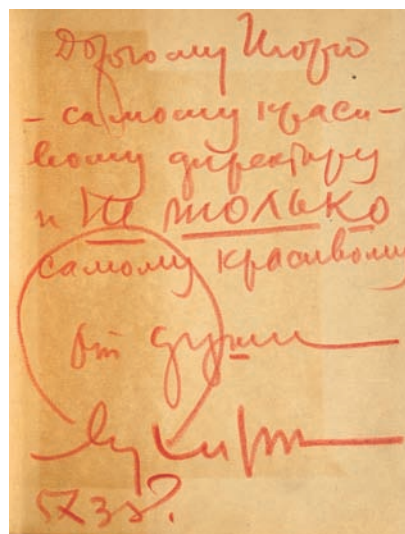 Дорогому Игорю
- самому краси-
вому директору
и не только
самому красивому
от души